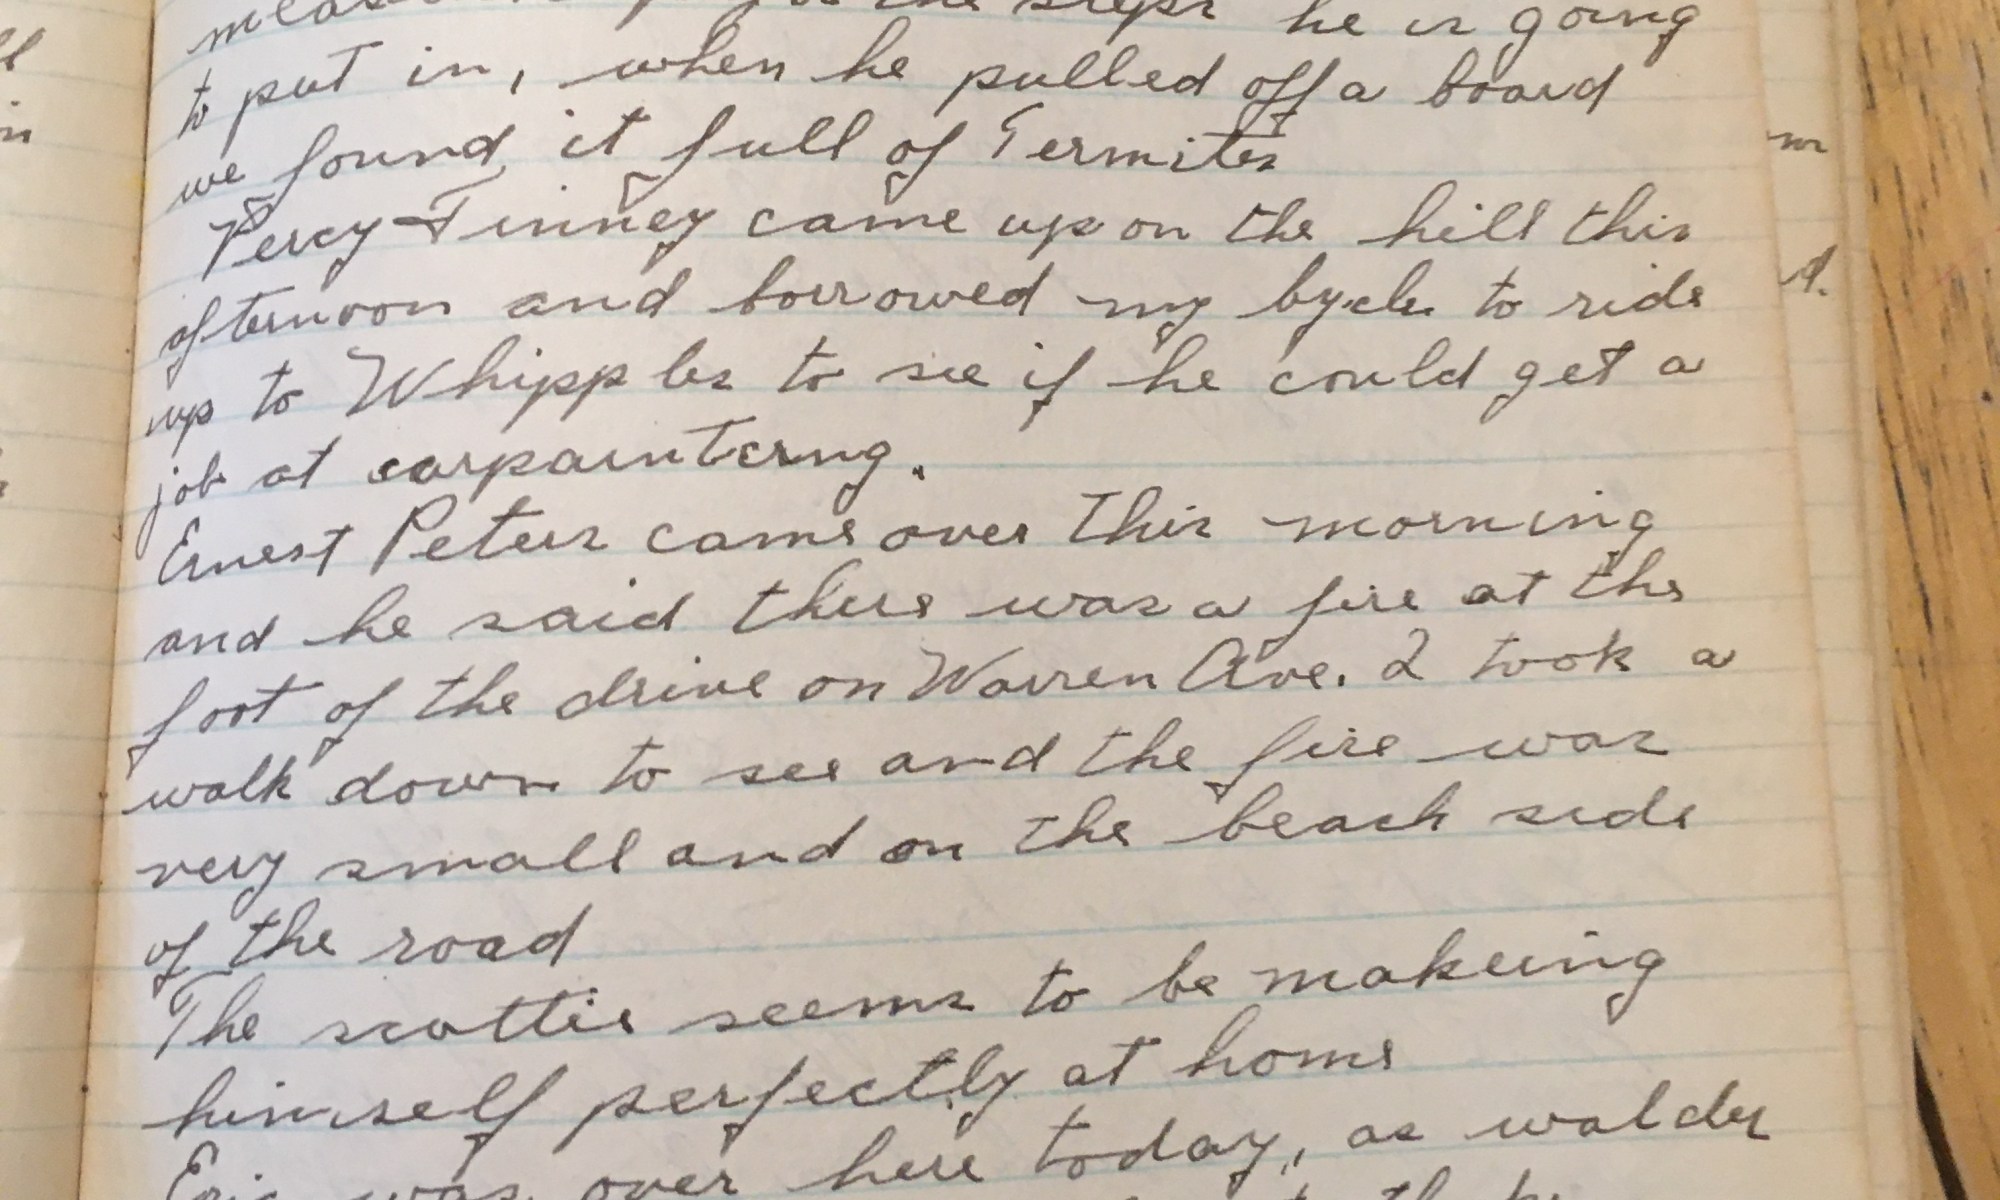 the steps he is going
to put in, when he pulled off a board
we found it full of Termites
Percy Tinney came up on the hill this
afternoon and borrowed my bycle to ride
up to Whipples to see if he could get a
job at carpaintering.
Ernest Peters came over this morning
and he said there was a fire at the
foot of the drive on Warren Ave. I took a
walk down to see and the fire was
very small and on the beach side
of the road
The scottie seems to be makeing
himself perfectly at home
Eric was over here today, as